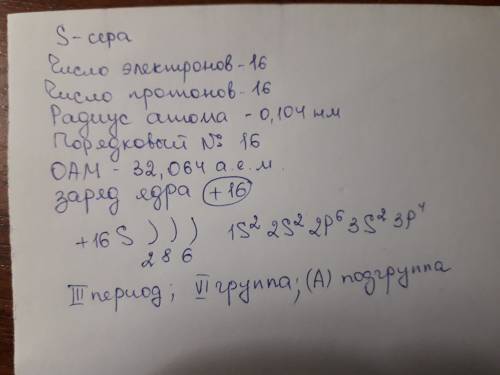 S-сера
Число электронов-16
Число протонов-16
Радиус атома - 0,104 нм
Порядковый № 16
ОАМ - 32,064 а.е.м.
заряд ядра +16
+16 S ) ) ) 1S² 2S² 2P⁶ 3S² 3P⁴
2 8 6
III период; VI группа; (А) подгруппа